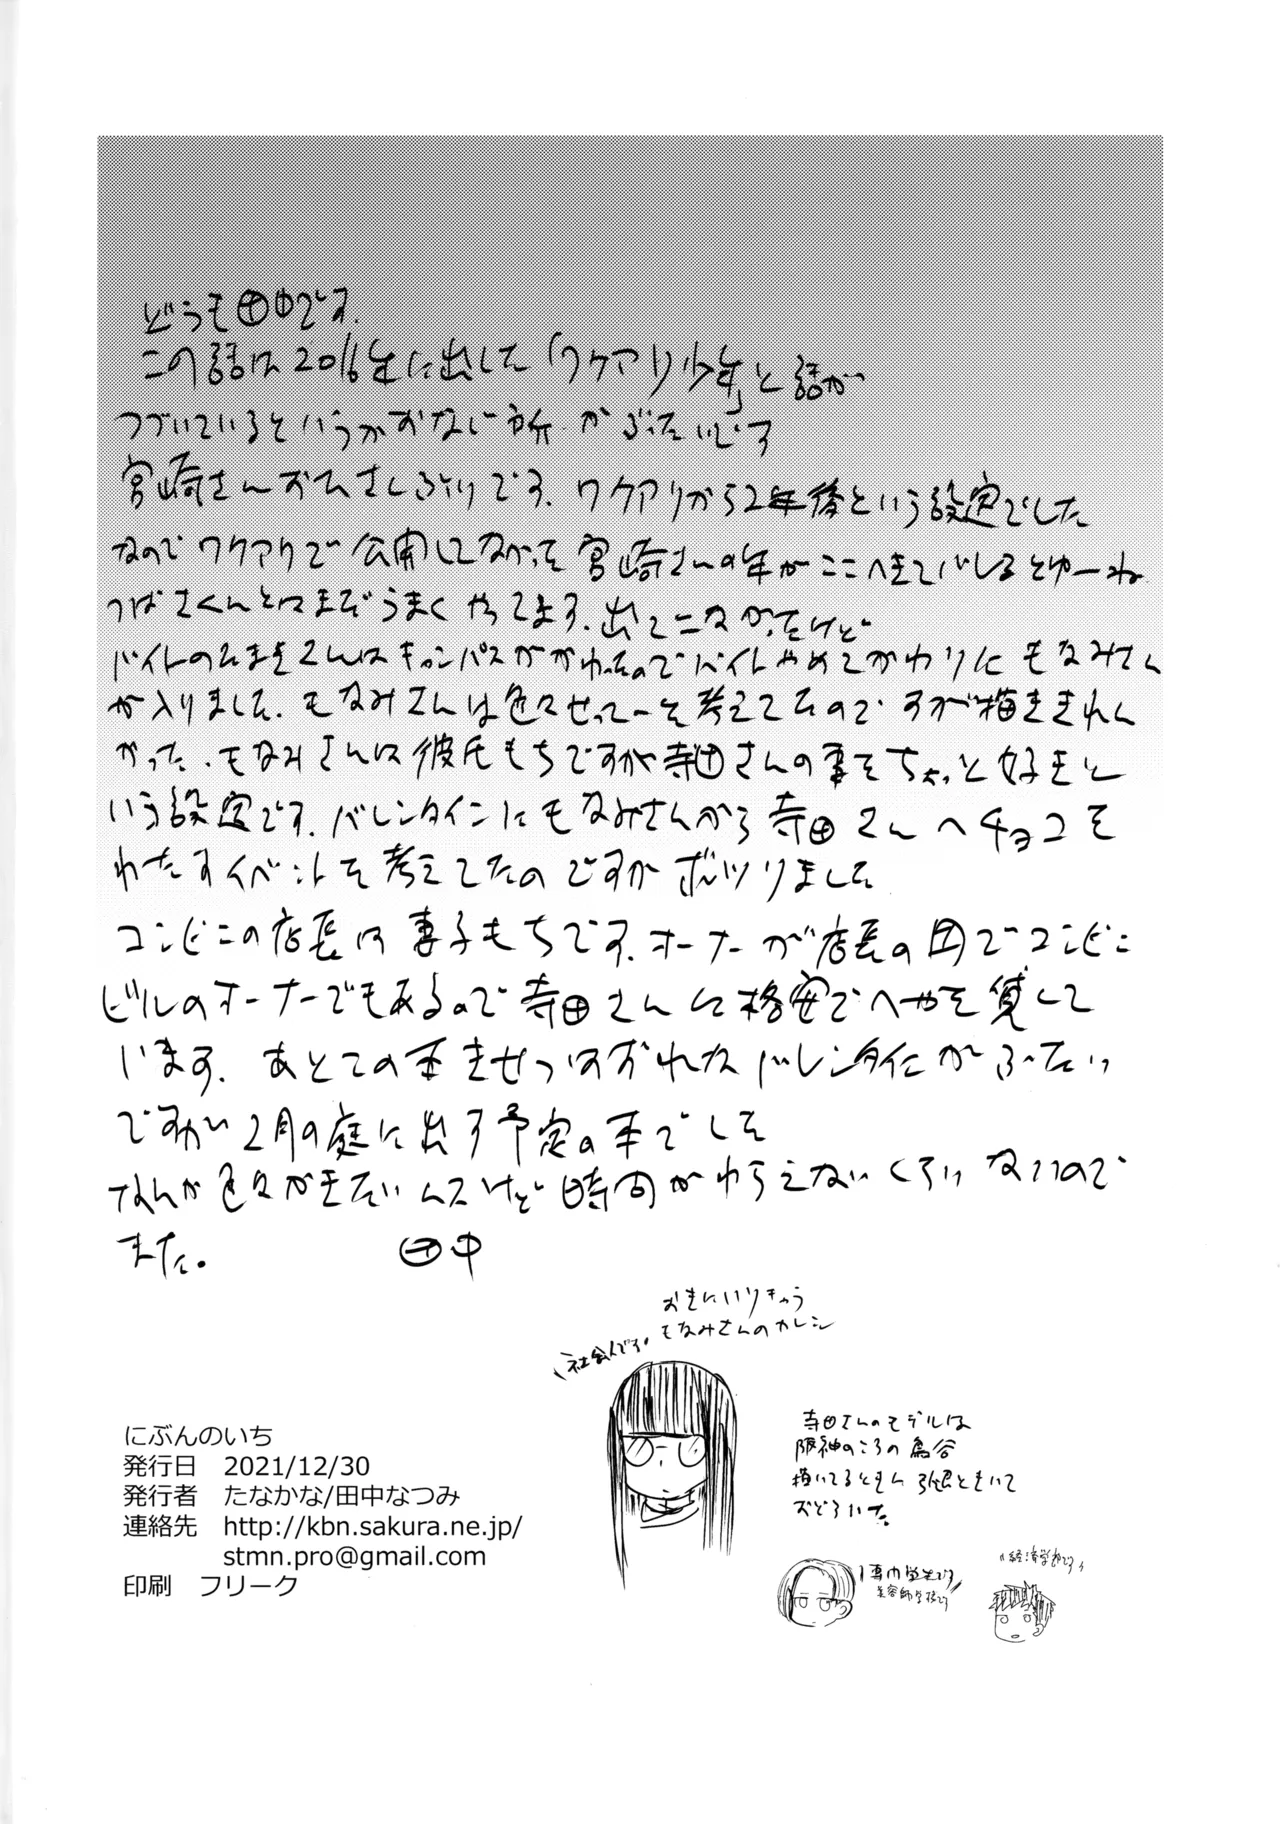 どうも田中です。
この話は2016年に出した「ワケアリ少年」と話が
つづいているというかおなじ所がぶたいです
宮崎さんおひさしぶりです。ワケアリから2年後という設定でした
なのでワケアリで公開してなかった宮崎さんの年がここへきてバレるとゆーね
つばさくんとはまだうまくやってます。出てこなかったけど
バイトのたまきさんはキャンパスがかわったのでバイトやめてかわりにもなみさん
が入りました。もなみさんは色々せってーを考えてたのですが描ききれん
かった。もなみさんは彼氏もちですが寺田さんの事をちょっと好きと
いう設定です。バレンタインにもなみさんから寺田さんへチョコを
わたすイベントを考えてたのですがボツりました
コンビニの店長は妻子もちです。オーナーが店長の
ビルのオーナーでもあるので寺田さんに格安でへやを貸して
います。あとこの本きせつはずれたバレンタインがぶたい
ですが2月の庭に出す予定の本でした
なんか色々かきたいんだけど時間がわらえないくらいないので
また。 田中
おきにいりキャラ
もなみさんのカレシ
社会人です
寺田さんのモデルは
阪神のころの鳥谷
描いてるときに引退ときいて
おどろいた。
専門学生です
美容師学校です
経済学部です
にぶんのいち
発行日 2021/12/30
発行者 たなかな/田中なつみ
連絡先 http://kbn.sakura.ne.jp/
stmn.pro@gmail.com
印刷 フリーク